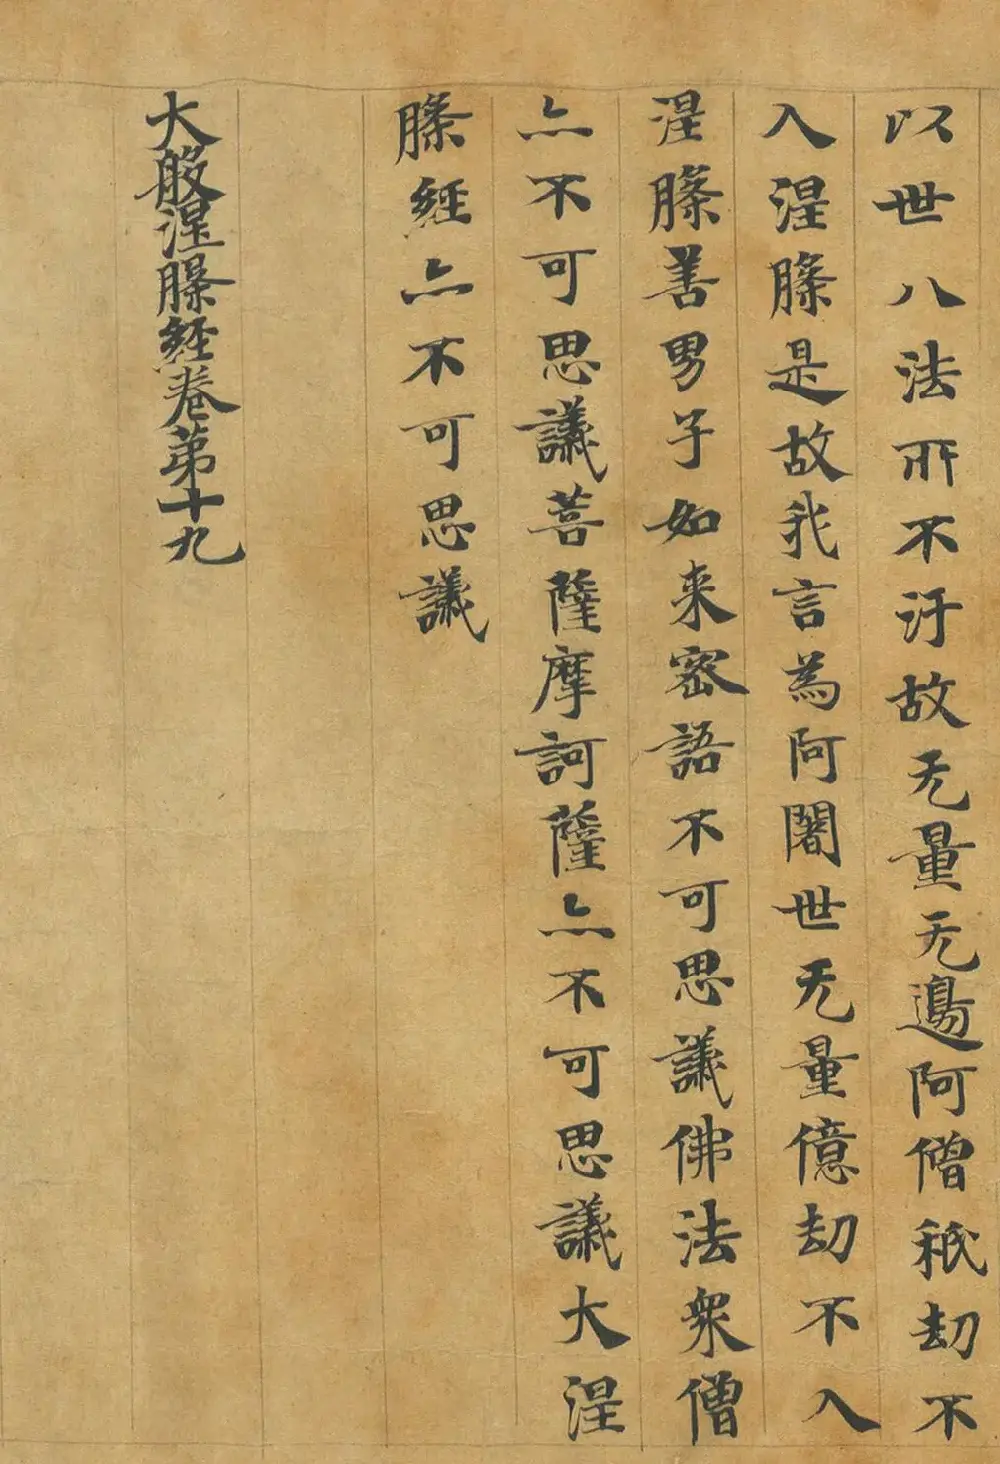 以世八法所不汙故无量无邊阿僧祇劫不
入涅槃是故我言為阿闍世无量億劫不入
涅槃善男子如来密語不可思議佛法衆僧
亦不可思議菩薩摩訶薩亦不可思議大涅
槃經亦不可思議
大般涅槃經卷第十九